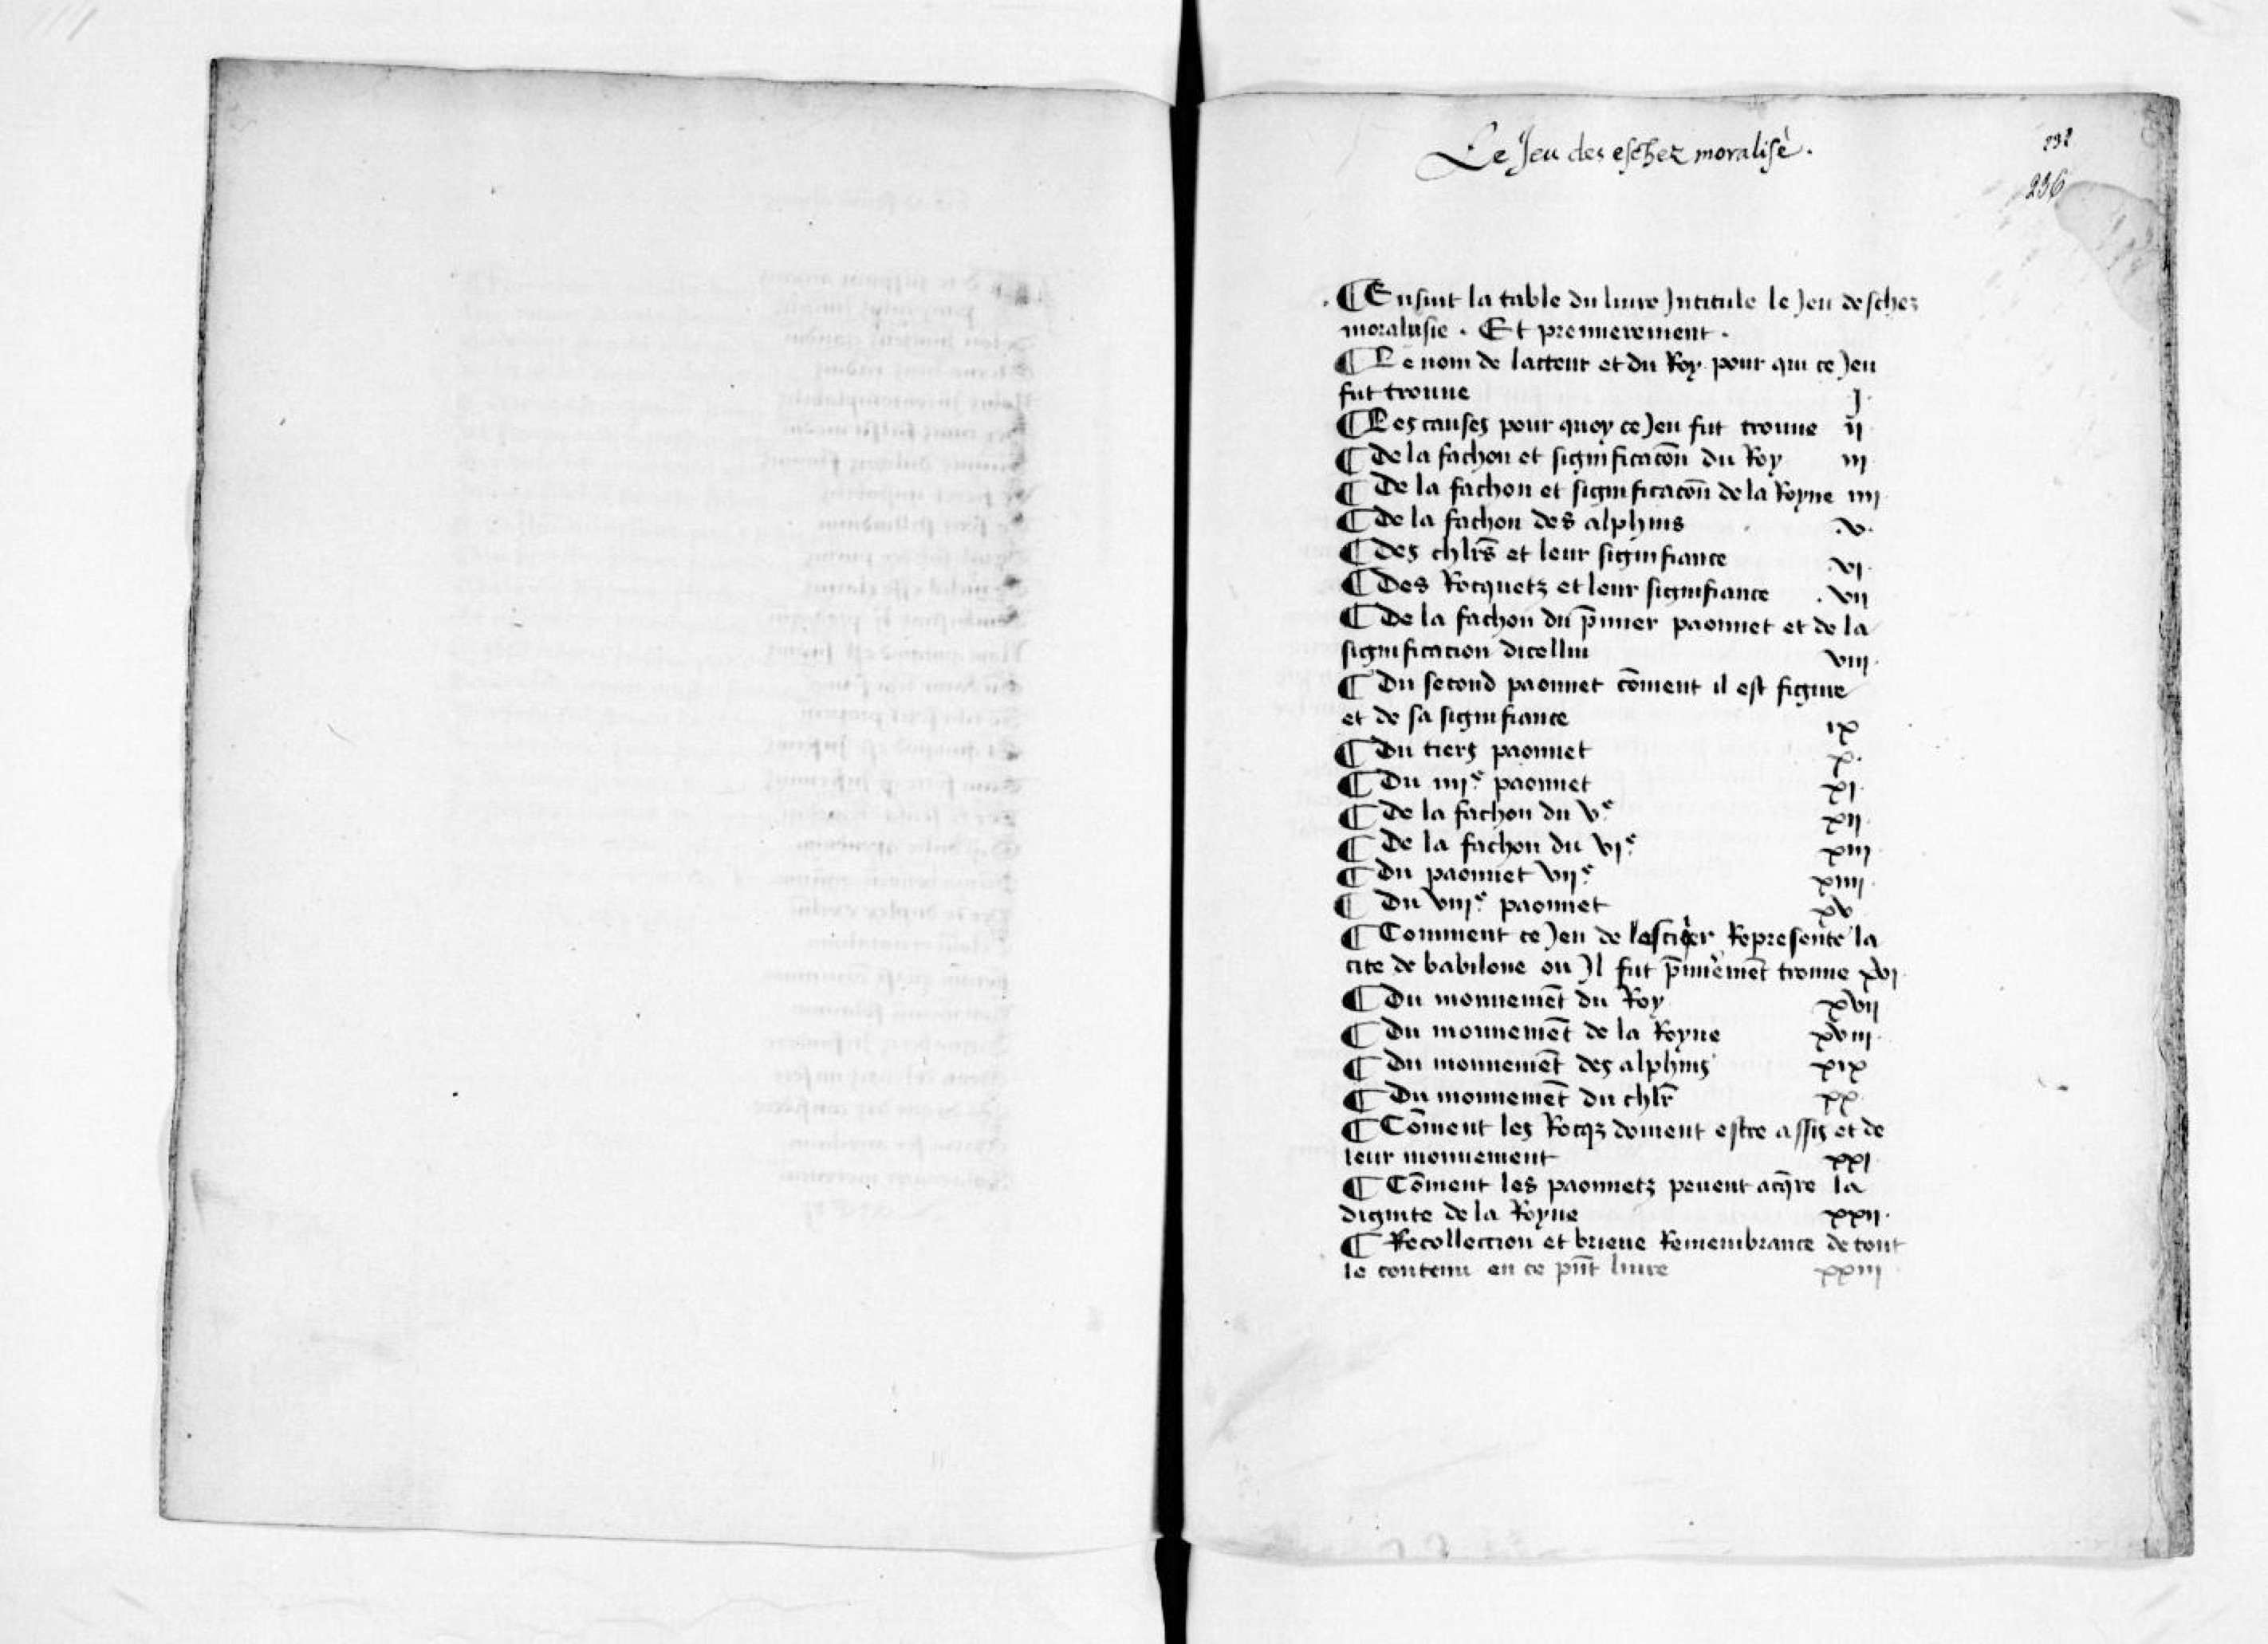 Le Jeu des eschez moralisè.
232
236
¶ Ensuit la table du liure Jntitule le Jeu deschez
moralisie . Et premierement .
¶ Le nom de lacteur et du Roy pour qui ce Jeu
fut trouue j.
¶ Les causes pour quoy ce Jeu fut trouue ij
¶ De la fachon et significacōn du Roy iij
¶ De la fachon et significacōn de la Royne iiij
¶ De la fachon des alphins .v.
¶ Des chl̄rs et leur signifiance .vj.
¶ Des Rocquetz et leur signifiance .vij
¶ De la fachon du p̄mier paonnet et de la
signification dicellui viij.
¶ Du second paonnet cōment il est figure
et de sa signifiance ix
¶ Du tiers paonnet x.
¶ Du iiijᵉ paonnet xj.
¶ De la fachon du vᵉ xij.
¶ De la fachon du vjᵉ xiij
¶ Du paonnet vijᵉ xiiij.
¶ Du viijᵉ paonnet xv
¶ Comment ce Jeu de Represente la
cite de babilone ou Jl fut p̄mieremēt trouue xvj.
¶ Du mouuemēt du Roy xvij
¶ Du mouuemēt de la Royne xviij.
¶ Du mouuemēt des alphins xix
¶ Du mouuemēt du chl̄r xx.
¶ Cōment les Rocqz doiuent estre assis et de
leur mouuement xxj.
¶ Cōment les paonnetz peuent acq̄re la
dignite de la Royne xxij.
¶ Recollection et brieue Remembrance de tout
le contenu en ce pn̄t liure xxiij